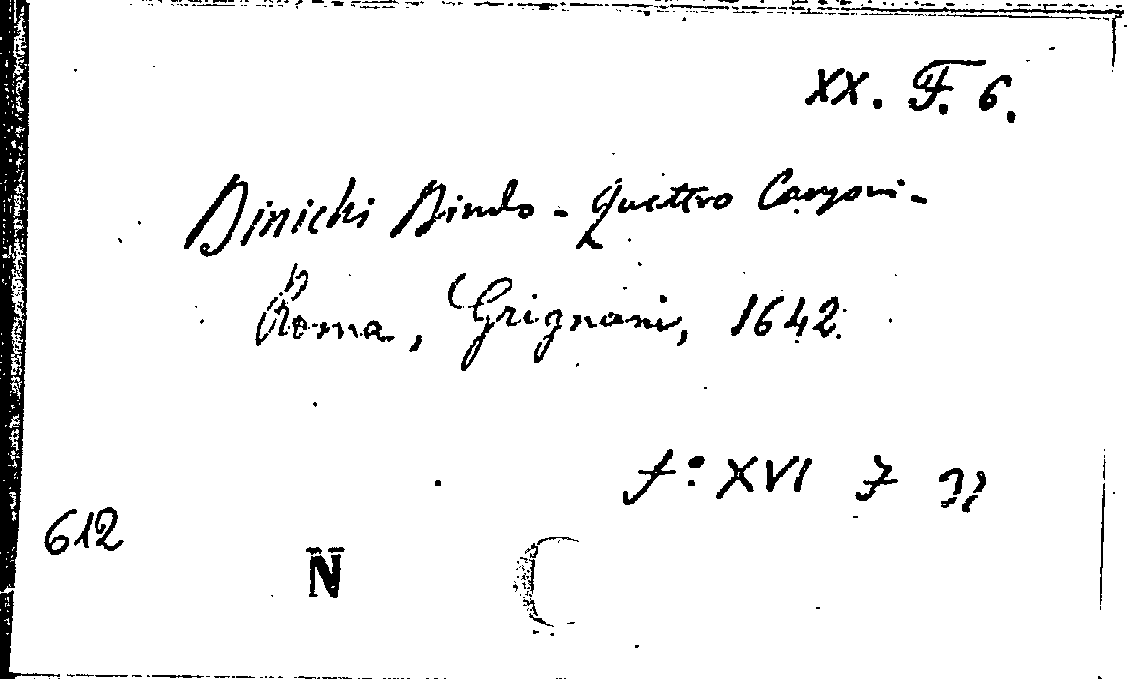 XX. F. 6.
Binichi Bindo - Quattro Canzoni -
Roma, Grignani, 1642.
f.º XVI 7
612
N